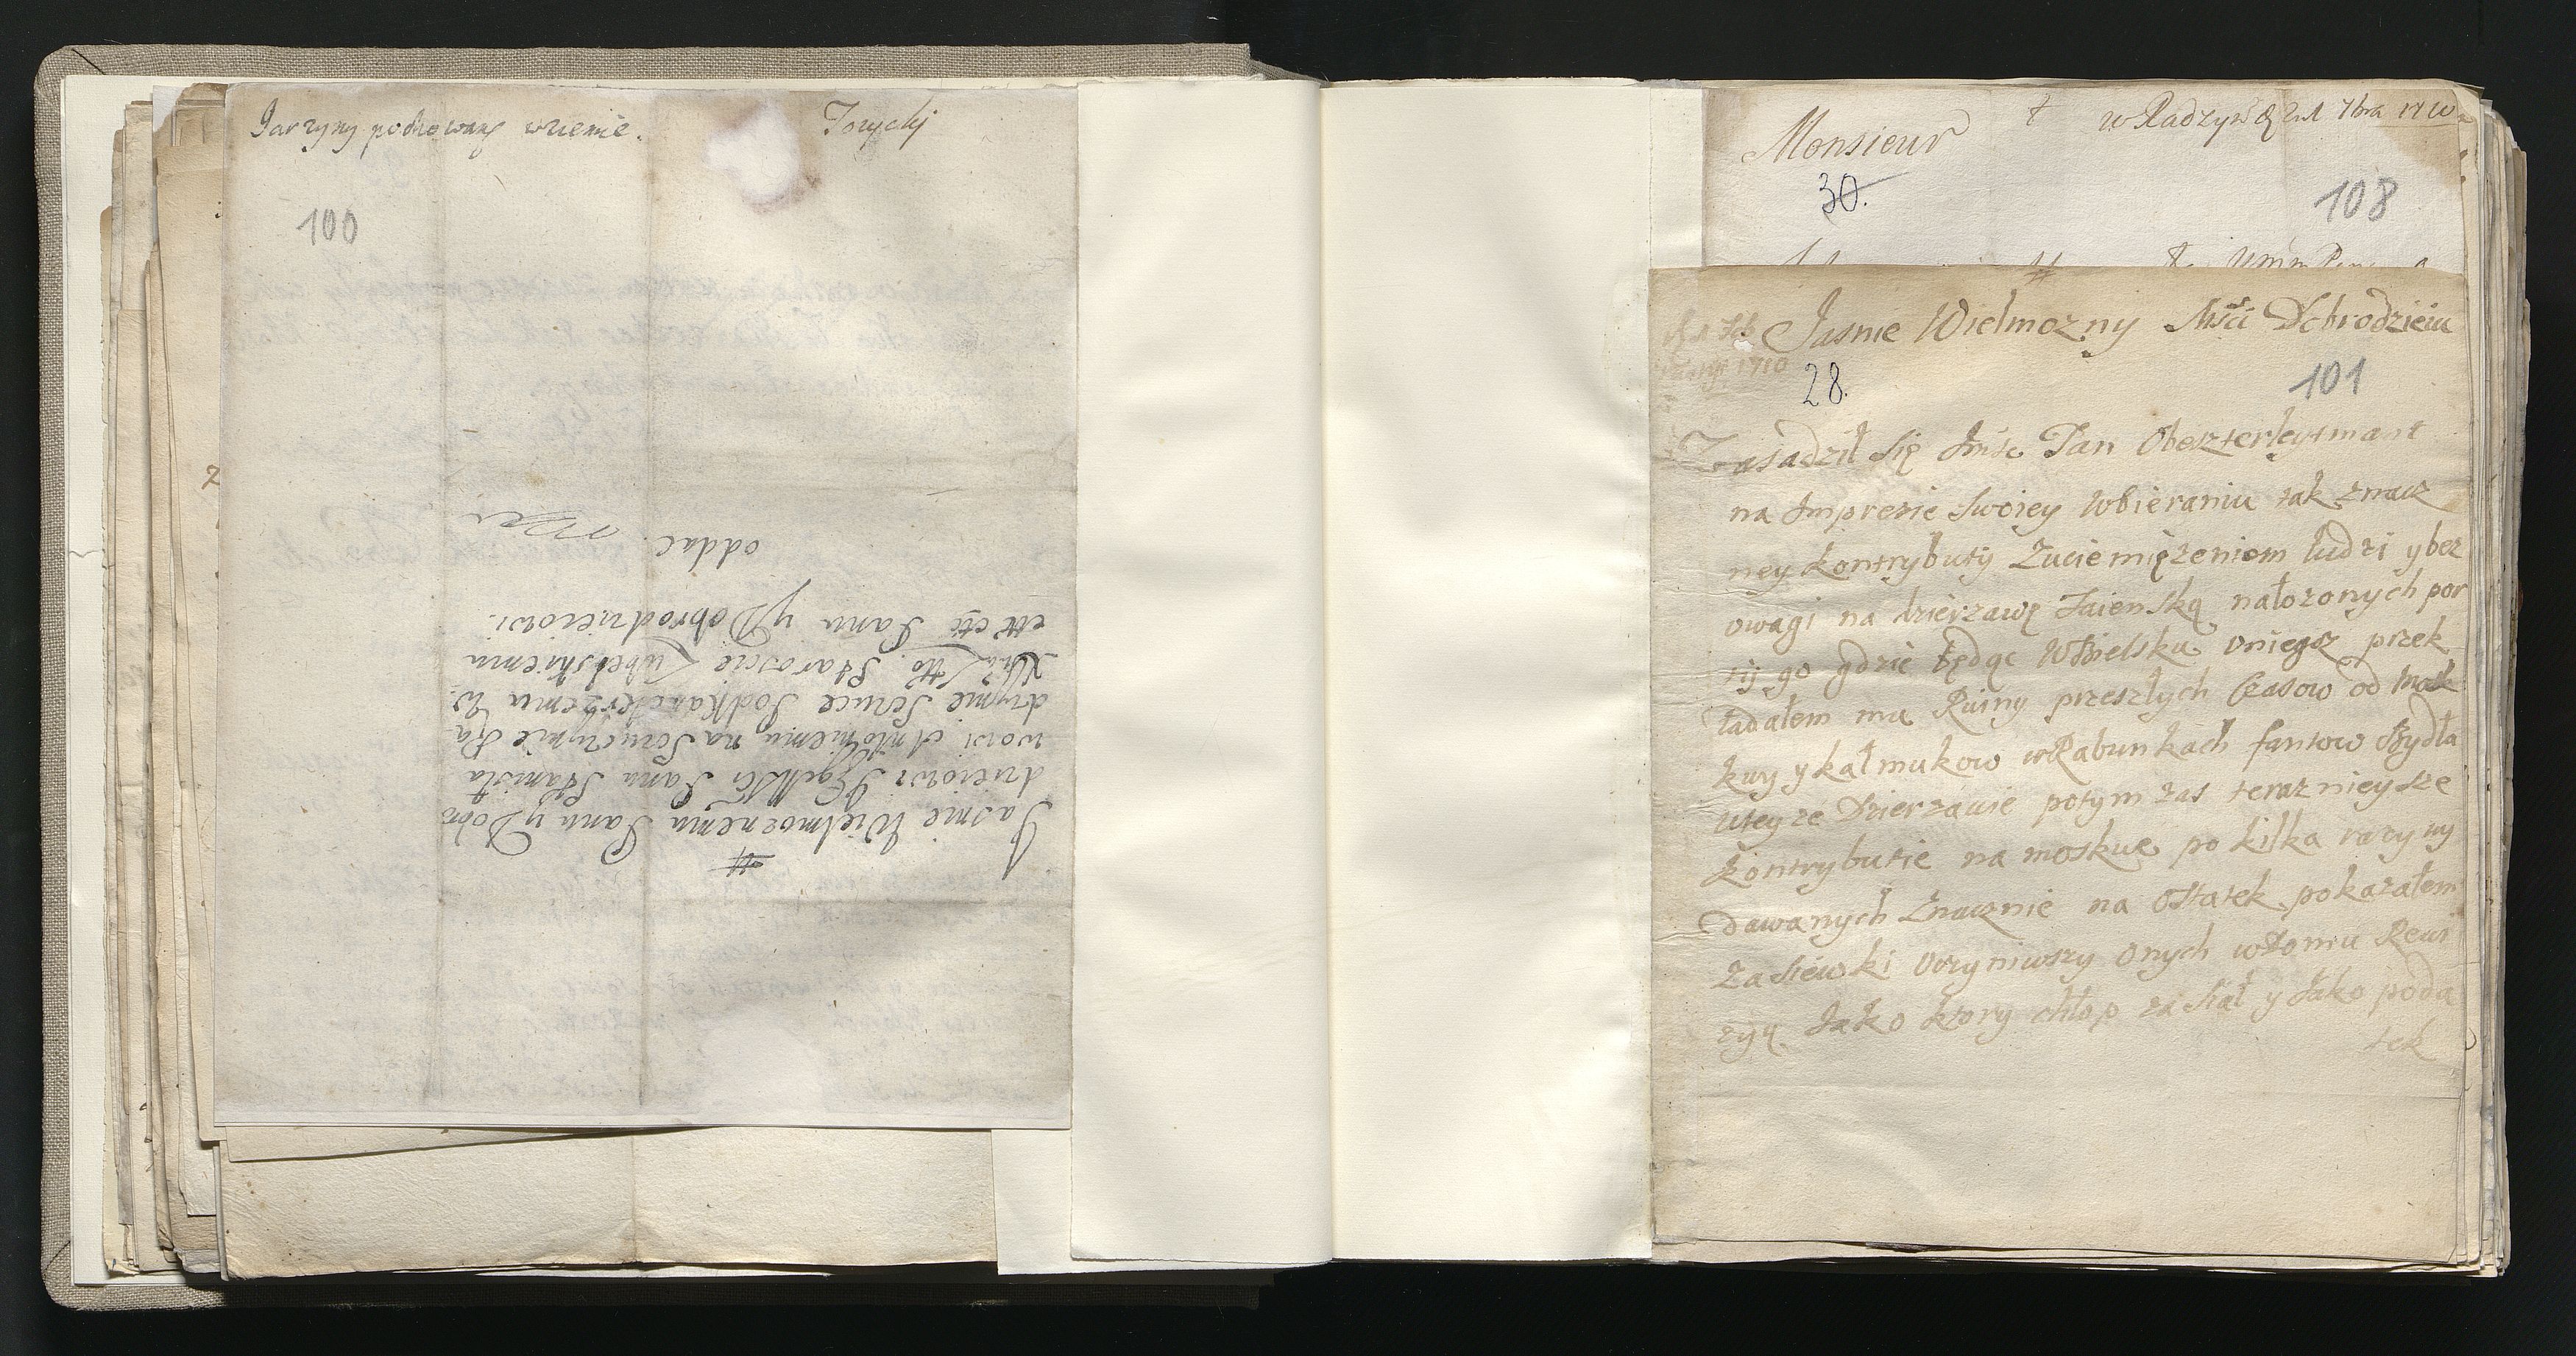 Jarzyny pochowany wziemie. Torycki
100
#
Jasnie Wielmoznemu Panu y Dobro
dzieiowi Panu Stanisła
wowi Antoniemu na Szczuczynie Ra
dzynie Szczuce Podkanclerzemu W.
Xtwa Litto. Staroscie Lubelskiemu
ett ctt Panu y Dobrodzieiowi.
oddac.
Monsieur
w Radzyn 7bra 1710
30.
108
1710
Jasnie Wielmozny Mści Dobrodzieiu
28.
101
Zasadził się Jmśc Pan Oberszterleytmant
na Jmprezie swoiey wbieraniu tak znacz
ney kontrybuty Zuciemięzeniem ludzi y bez
uwagi na dzierzawę nałozonych por
tij go gdzie będąc WBielsku uniego przek
ładałem mu Ruiny przeszłych Czasow od Mosk
kwy y kałmukow wRabunkach fantow Bydła
wteyze Dzierzawie potym zas teraznieysze
kontrybutie na moskwę po kilka razy wy
dawanych Znacznie na ostatek pokazałem
Zasiewki uczyniwszy onych wDomu Rewi
zyą Jako ktory chłop zasiał y Jako poda
tek